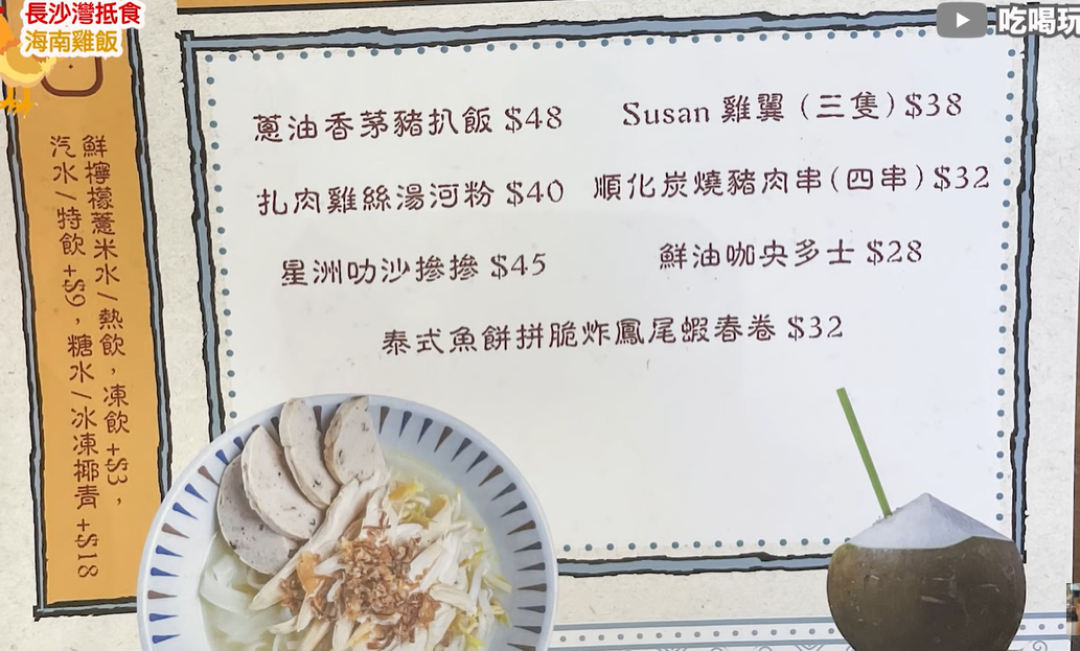 長沙灣抵食
海南雞飯
吃喝玩
蔥油香茅豬扒飯 $48
Susan 雞翼 (三隻) $38
扎肉雞絲湯河粉 $40
順化炭燒豬肉串(四串) $32
星洲叻沙摻摻 $45
鮮油咖央多士 $28
泰式魚餅拼脆炸鳳尾蝦春卷 $32
鮮檸檬薏米水/熱飲,凍飲 +$3,
汽水/特飲 +$9,糖水/冰凍椰青 +$18